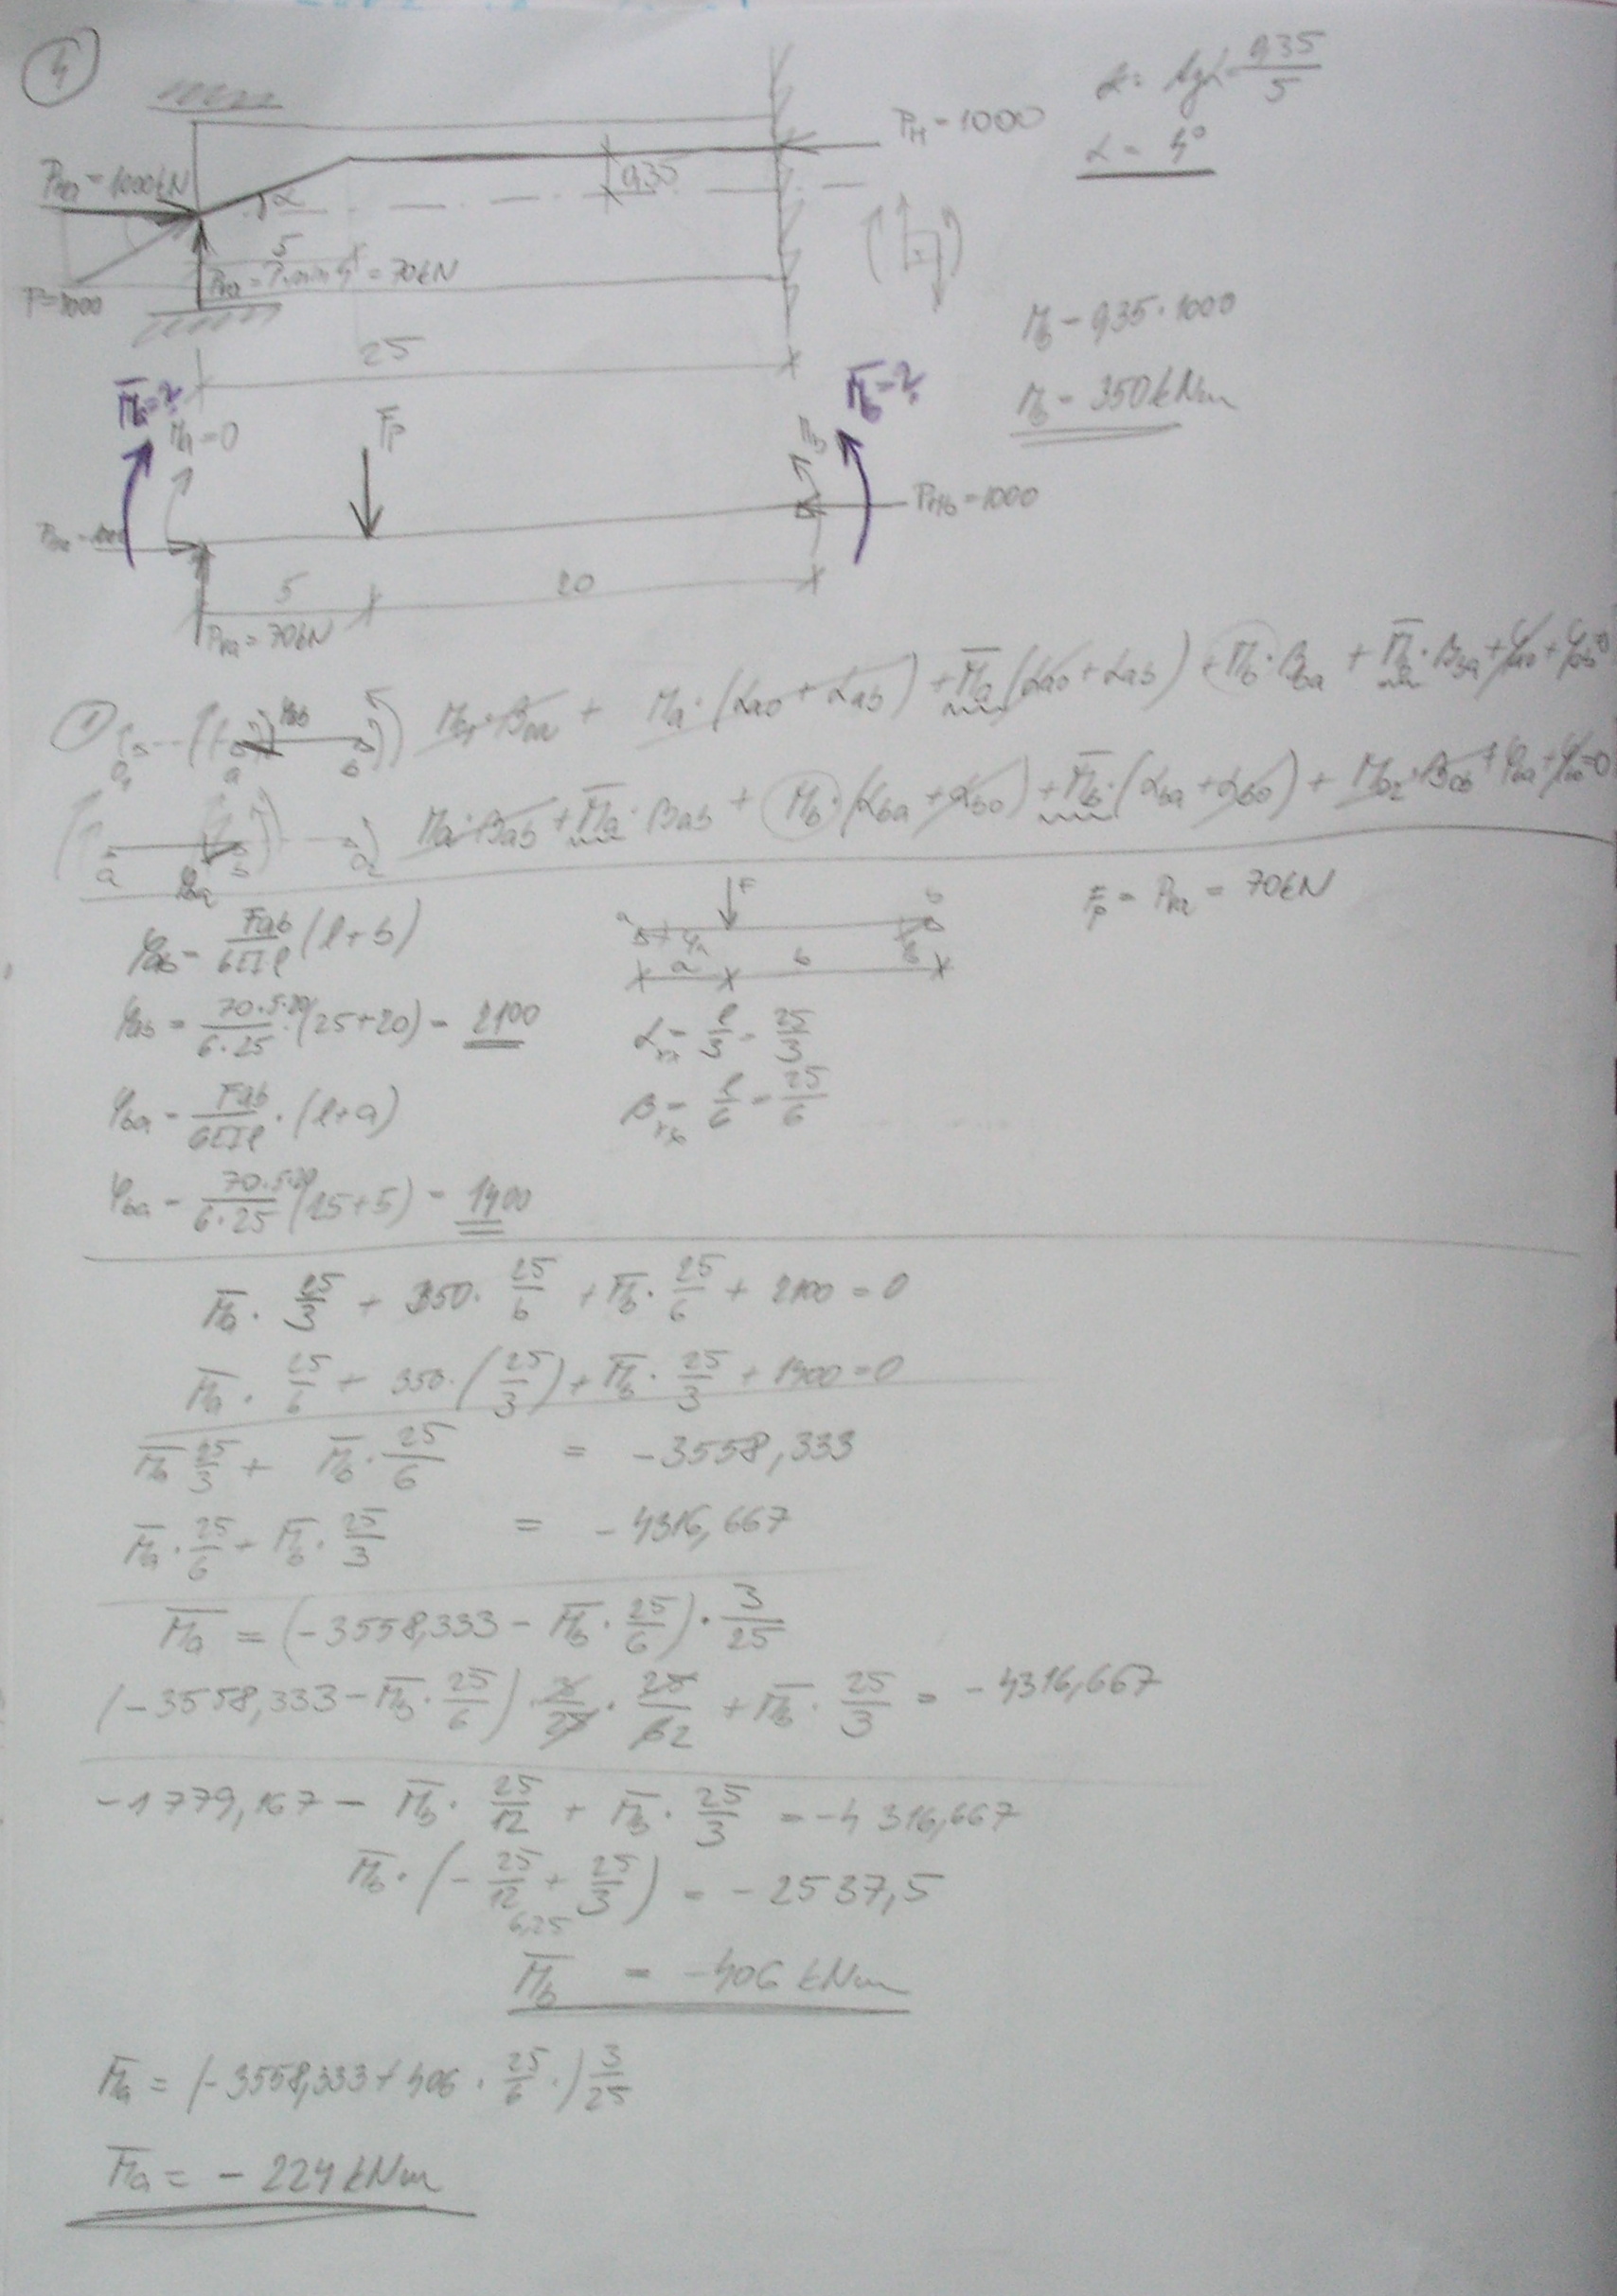 4
α: tgα = 0,35/5
α = 4°
P_H = 1000
P_Ha = 1000 kN
0,35
α
5
P_Va = P·sin 4° = 70 kN
P = 1000
25
M_b = 0,35·1000
M_b = 350 kNm
M̄_a = ?
M_a = 0
F_P
M_b
M̄_b = ?
P_Hb = 1000
5
20
P_Va = 70 kN
① M_01·β_0a + M_a·(α_a0 + α_ab) + M̄_a (α_a0 + α_ab) + M_b·β_ba + M̄_b·β_ba + φ_a0 + φ_ab = 0
M_a·β_ab + M̄_a·β_ab + M_b·(α_ba + α_b0) + M̄_b·(α_ba + α_b0) + M_02·β_0b + φ_ba + φ_b0 = 0
φ_ab = Fab/6EIl (l+b)
F
a b
F_P = P_Va = 70 kN
φ_ab = 70·5·20/6·25 · (25+20) = 2100
α = l/3 = 25/3
φ_ba = Fab/6EIl · (l+a)
β = l/6 = 25/6
φ_ba = 70·5·20/6·25 (25+5) = 1400
M̄_a · 25/3 + 350 · 25/6 + M̄_b · 25/6 + 2100 = 0
M̄_a · 25/6 + 350 · (25/3) + M̄_b · 25/3 + 1400 = 0
M̄_a 25/3 + M̄_b · 25/6 = -3558,333
M̄_a · 25/6 + M̄_b · 25/3 = -4316,667
M̄_a = (-3558,333 - M̄_b · 25/6) · 3/25
(-3558,333 - M̄_b · 25/6) · 3/25 · 25/62 + M̄_b · 25/3 = -4316,667
-1779,167 - M̄_b · 25/12 + M̄_b · 25/3 = -4316,667
M̄_b · (-25/12 + 25/3) = -2537,5
6,25
M̄_b = -406 kNm
M̄_a = (-3558,333 + 406 · 25/6 ·) 3/25
M̄_a = -224 kNm